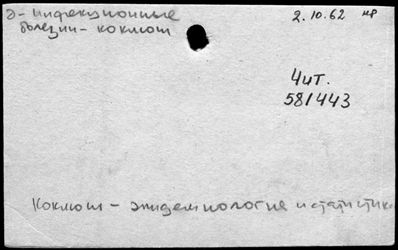 Э - инфекционные
болезни - коклюш
2.10.62 мр
Чит.
581443
Коклюш - эпидемиология и статистика